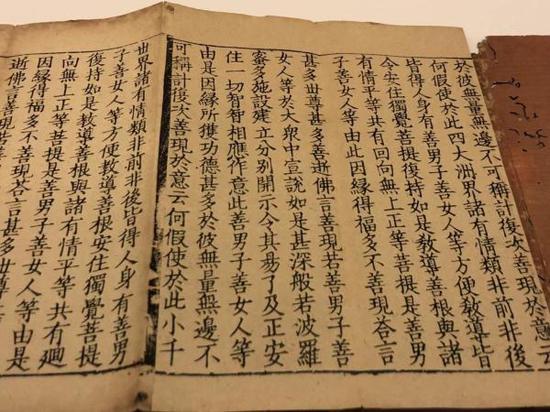 於彼無量無邊不可稱計復次善現於意云
何假使於此四大洲界諸有情類非前非後
皆得人身有善男子善女人等方便教導皆
令安住獨覺菩提復持如是教導善根與諸
有情平等共有回向無上正等菩提是善男
子善女人等由此因緣得福多不善現荅言
甚多世尊甚多善逝佛言善現若善男子善
女人等於大衆中宣說如是甚深般若波羅
蜜多施設建立分別開示令其易了及正安
住一切智智相應作意此善男子善女人等
由是因緣所獲功德甚多於彼無量無邊不
可稱計復次善現於意云何假使於此小千
世界諸有情類非前非後皆得人身有善男
子善女人等方便教導善根安住獨覺菩提
復持如是教導善根與諸有情平等共有廻
向無上正等菩提是善男子善女人等由是
因緣得福多不善現荅言甚多世尊甚多善
逝佛言善現